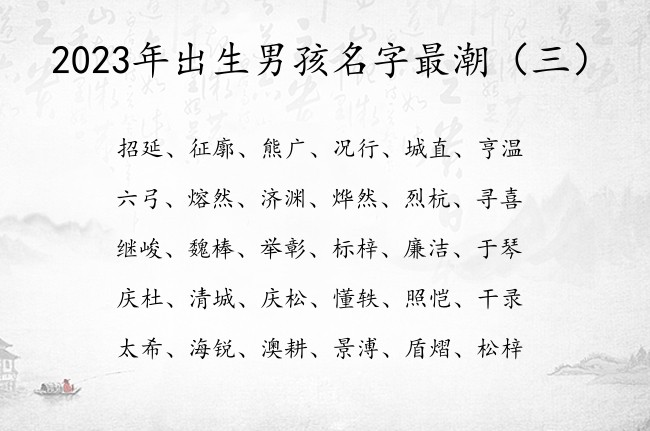 2023年出生男孩名字最潮（三）
招延、征廓、熊广、况行、城直、亨温
六弓、熔然、济渊、烨然、烈杭、寻喜
继峻、魏棒、举彰、标梓、廉洁、于琴
庆杜、清城、庆松、懂轶、照恺、干录
太希、海锐、澳耕、景溥、盾熠、松梓